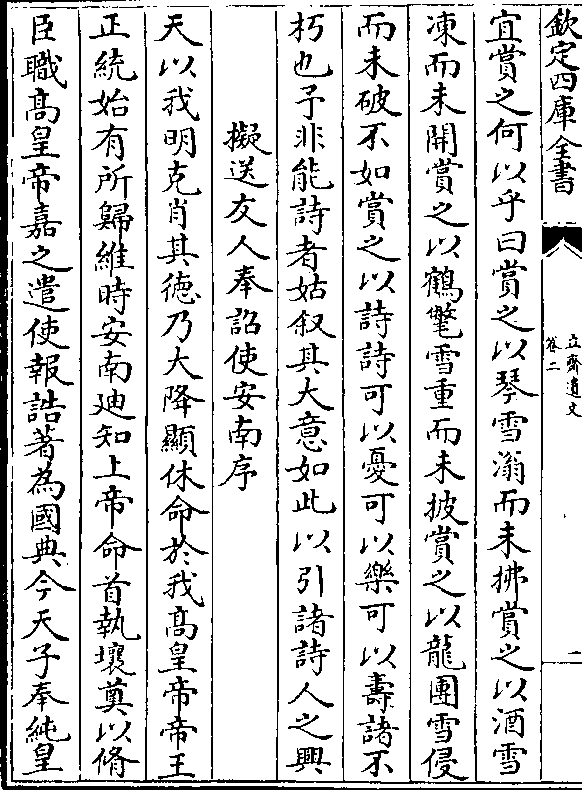 欽定四庫全書
立齋遺文
卷二
宜賞之何以乎曰賞之以琴雪滃而未拂賞之以酒雪
凍而未開賞之以鶴氅雪重而未披賞之以龍團雪侵
而未破不如賞之以詩詩可以憂可以樂可以壽諸不
朽也予非能詩者姑叙其大意如此以引諸詩人之興
擬送友人奉詔使安南序
天以我明克肖其德乃大降顯休命於我髙皇帝帝王
正統始有所歸維時安南廸知上帝命首執壤奠以脩
臣職髙皇帝嘉之遣使報誥著為國典今天子奉純皇